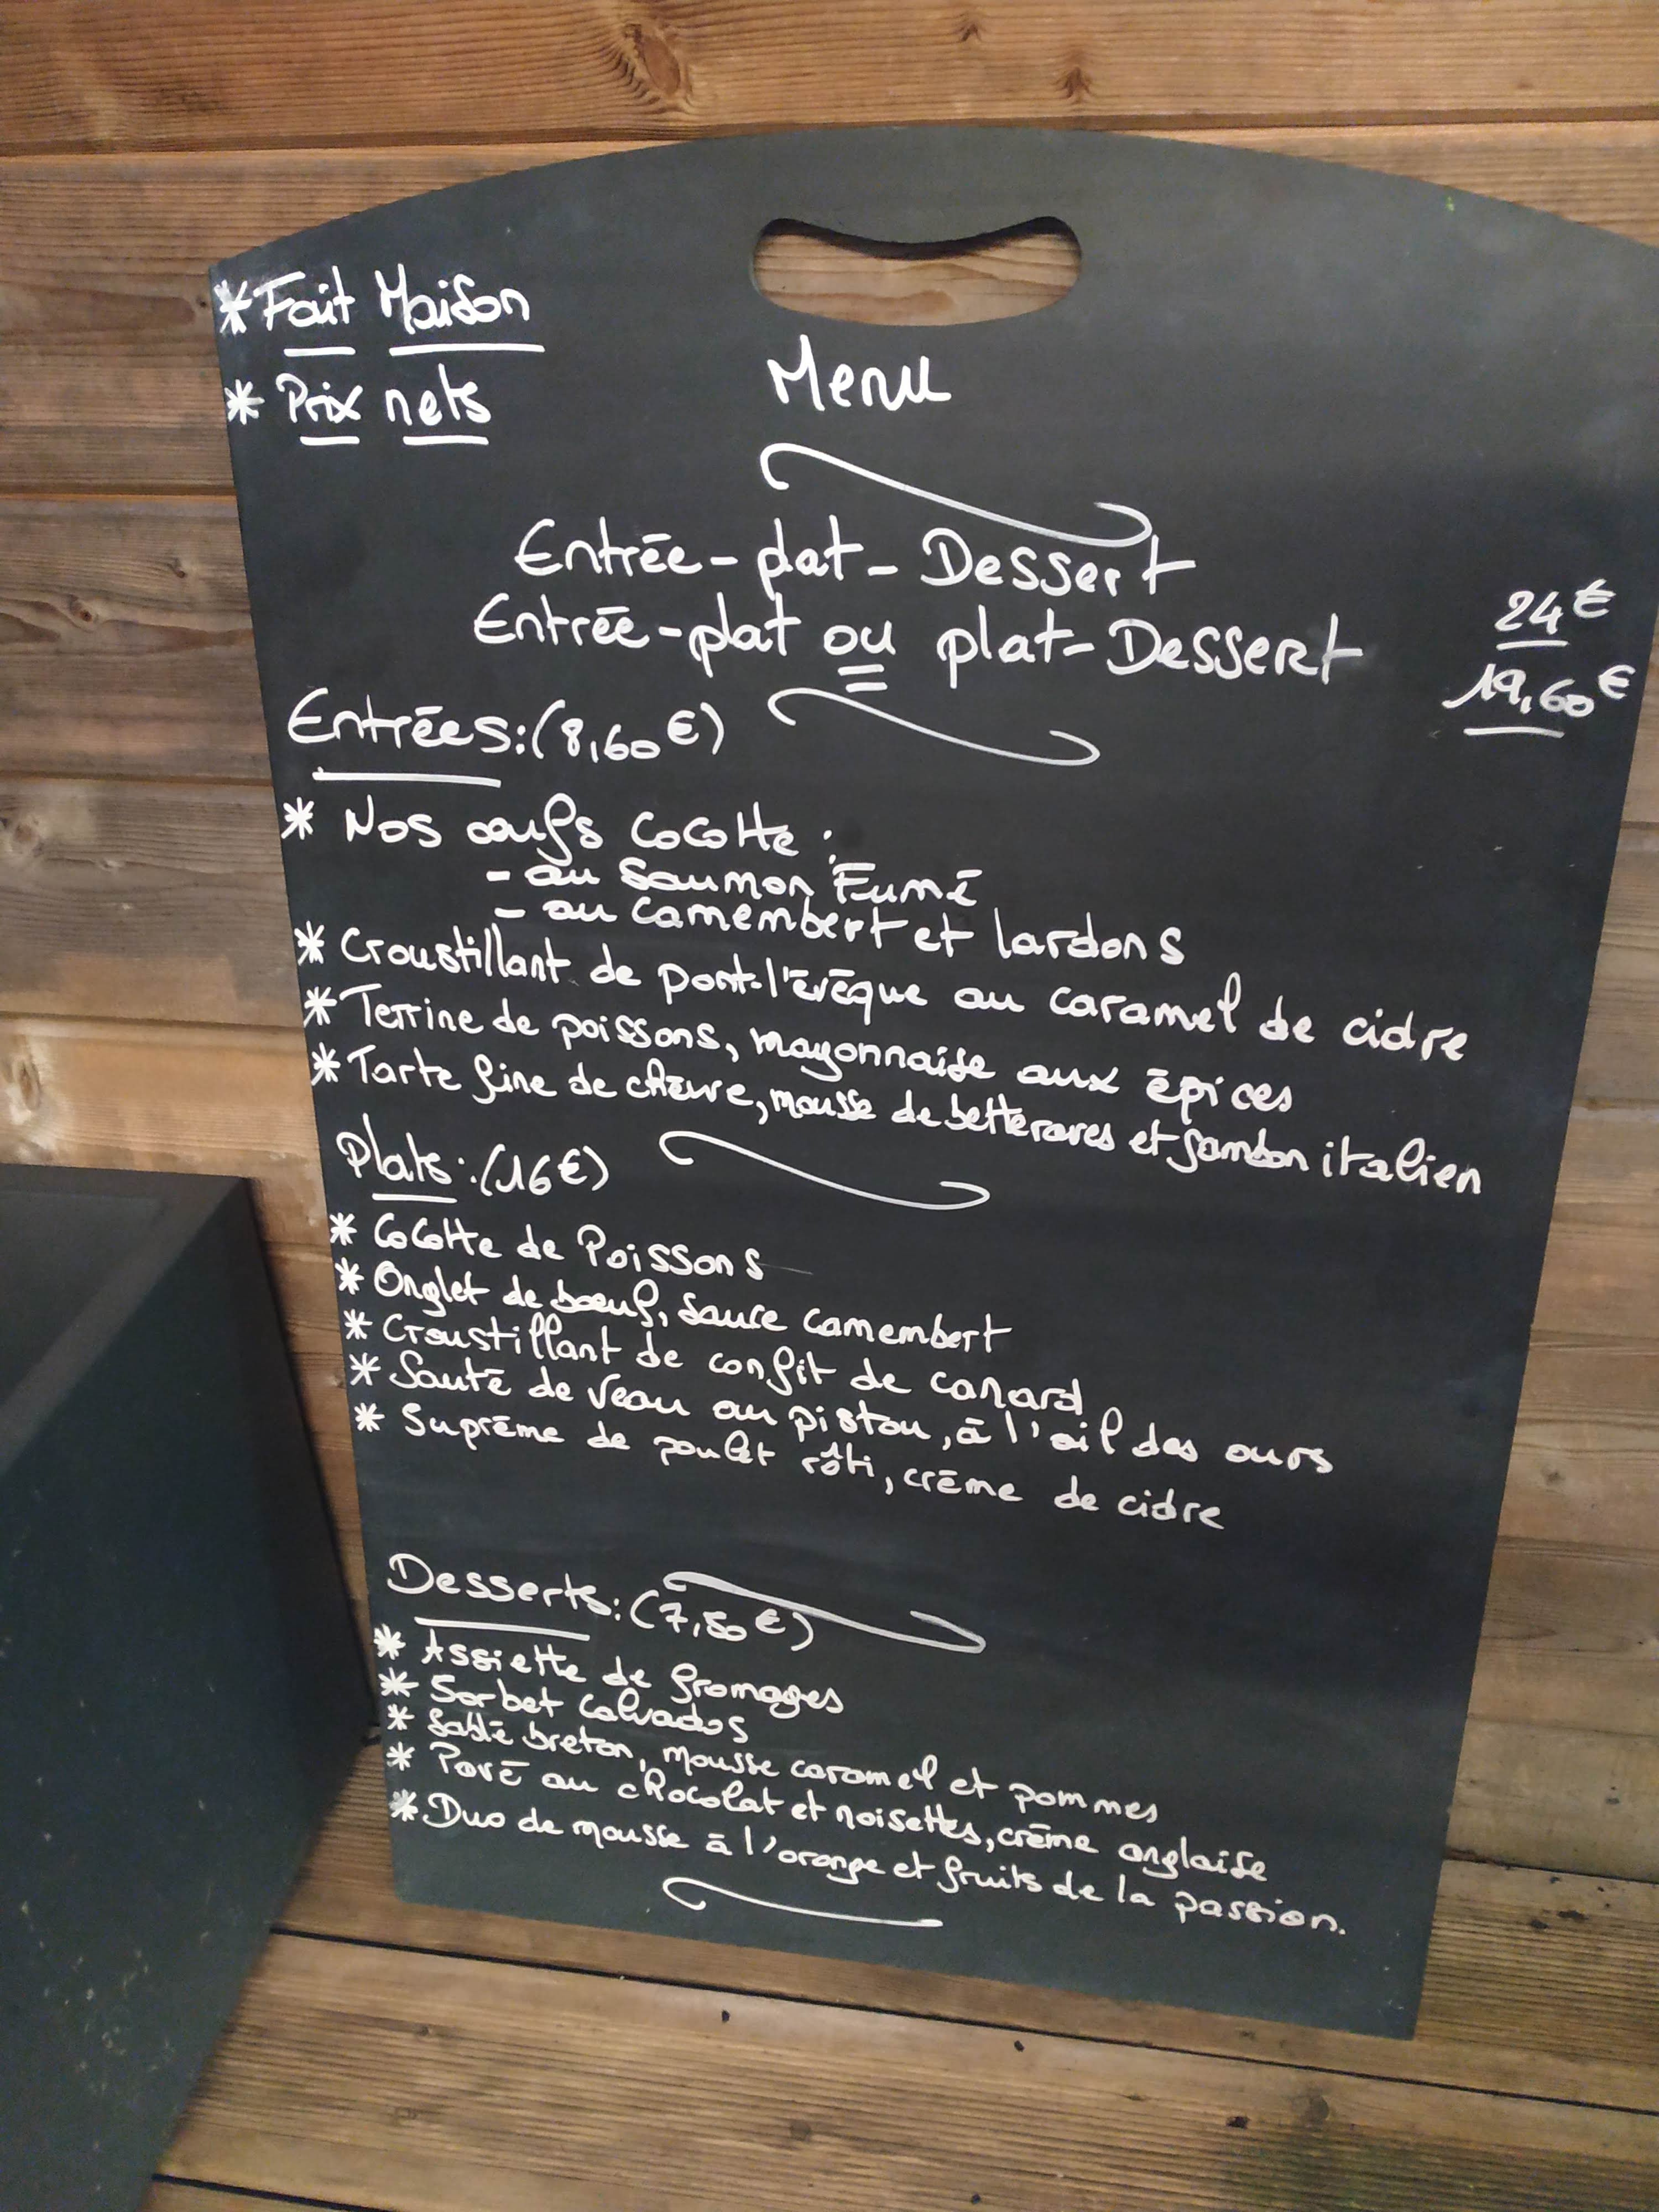 *Fait Maison
* Prix nets
Menu
Entrée-plat-Dessert 24€
Entrée-plat ou plat-Dessert 19,60€
Entrées:(8,60€)
* Nos œufs cocotte :
- au saumon Fumé
- au camembert et lardons
* Croustillant de pont-l'évêque au caramel de cidre
* Terrine de poissons, mayonnaise aux épices
* Tarte fine de chèvre, mousse de betteraves et jambon italien
Plats:(16€)
* Cocotte de Poissons
* Onglet de bœuf, sauce camembert
* Croustillant de confit de canard
* Sauté de veau au pistou, à l'ail des ours
* Suprême de poulet rôti, crème de cidre
Desserts:(7,50€)
* Assiette de fromages
* Sorbet Calvados
* Sablé breton, mousse caramel et pommes
* Pavé au chocolat et noisettes, crème anglaise
* Duo de mousse à l'orange et fruits de la passion.